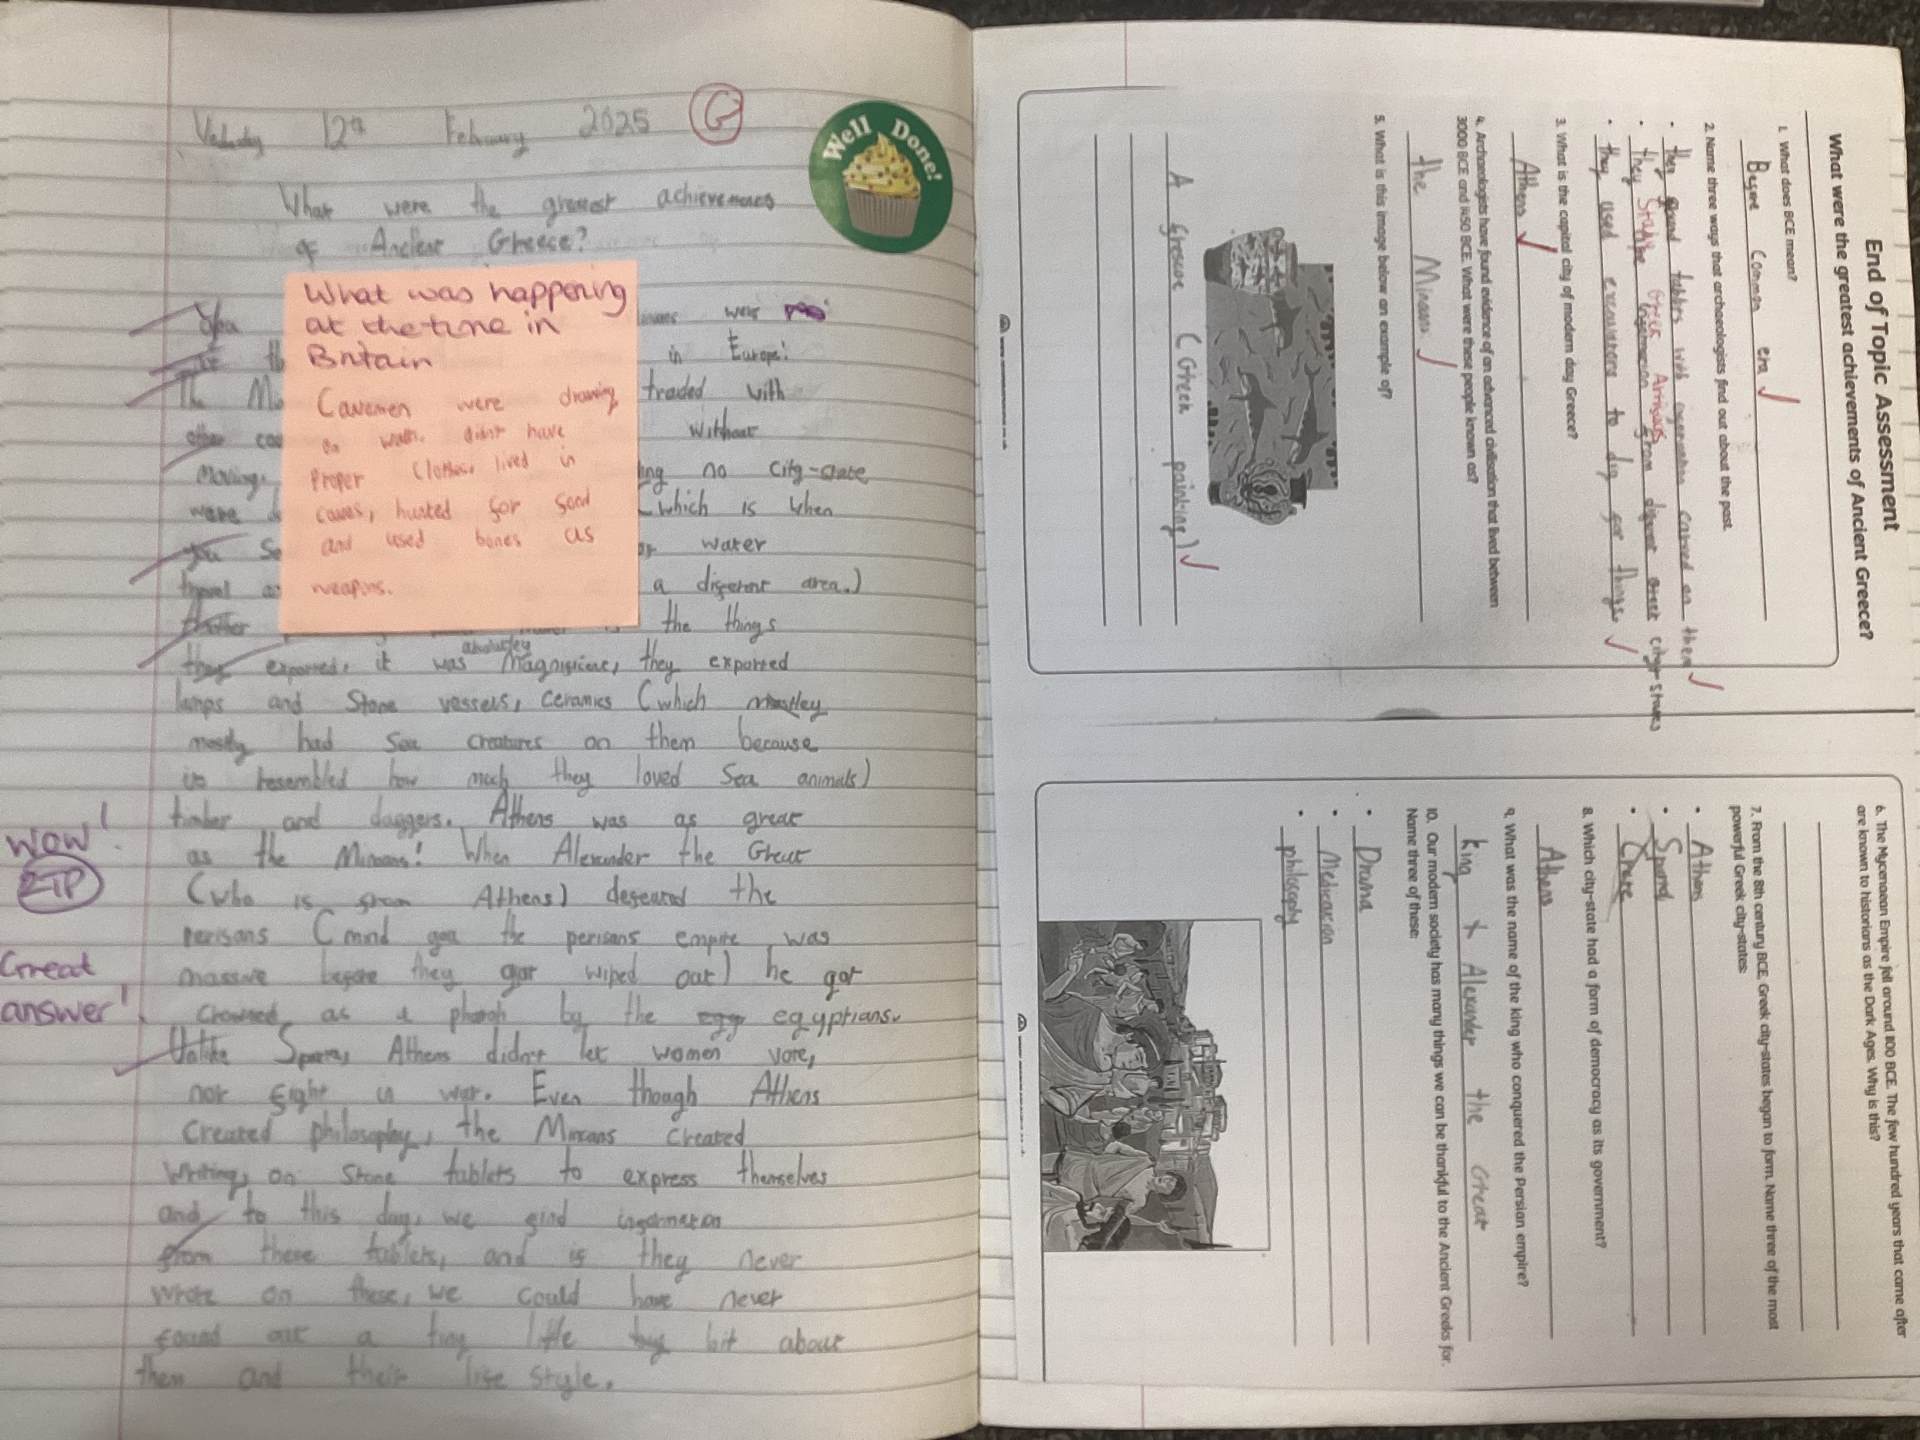 12th February 2025 G
Well Done!
What were the greatest achievements
of Ancient Greece?
What was happening
at the time in
Britain
Cavemen were drawing
on walls. didn't have
proper clothes, lived in
caves, hunted for food
and used bones as
weapons.
were
in Europe!
The traded with
other without
moving, no city-state
were (which is when
you water
travel a different area.)
the things
absolutley
they exported, it was magnificent, they exported
lamps and stone vessels, ceramics (which mostley
mostly had sea creatures on them because
it resembled how much they loved sea animals)
timber and daggers. Athens was as great
as the Minoans! When Alexander the Great
(who is from Athens) defeated the
perisans (mind you the perisans empire was
massive before they got wiped out) he got
crowned as a pharoh by the egy egyptians.
Unlike Sparta, Athens didn't let women vote,
nor fight in war. Even though Athens
created philosophy, the Minoans created
writing on stone tablets to express themselves
and to this day, we find information
from these tablets, and if they never
wrote on these, we could have never
found out a tiny little bit about
them and their life style.
WOW!
2TP
Great
answer!
End of Topic Assessment
What were the greatest achievements of Ancient Greece?
1. What does BCE mean?
Before Common era
2. Name three ways that archaeologists find out about the past.
• they found tablets with carved on them
• they from diffrent city-states
• they used excavators to dig for things
3. What is the capital city of modern day Greece?
Athens
4. Archaeologists have found evidence of an advanced civilisation that lived between
3000 BCE and 1450 BCE. What were these people known as?
the Minoans
5. What is this image below an example of?
A fresco (Greek painting)
6. The Mycenaean Empire fell around 1100 BCE. The few hundred years that came after
are known to historians as the Dark Ages. Why is this?
7. From the 8th century BCE, Greek city-states began to form. Name three of the most
powerful Greek city-states:
• Athens
• Spard
• Crete
8. Which city-state had a form of democracy as its government?
Athens
9. What was the name of the king who conquered the Persian empire?
king Alexander the Great
10. Our modern society has many things we can be thankful to the Ancient Greeks for.
Name three of these:
• Drama
• Medication
• philosophy